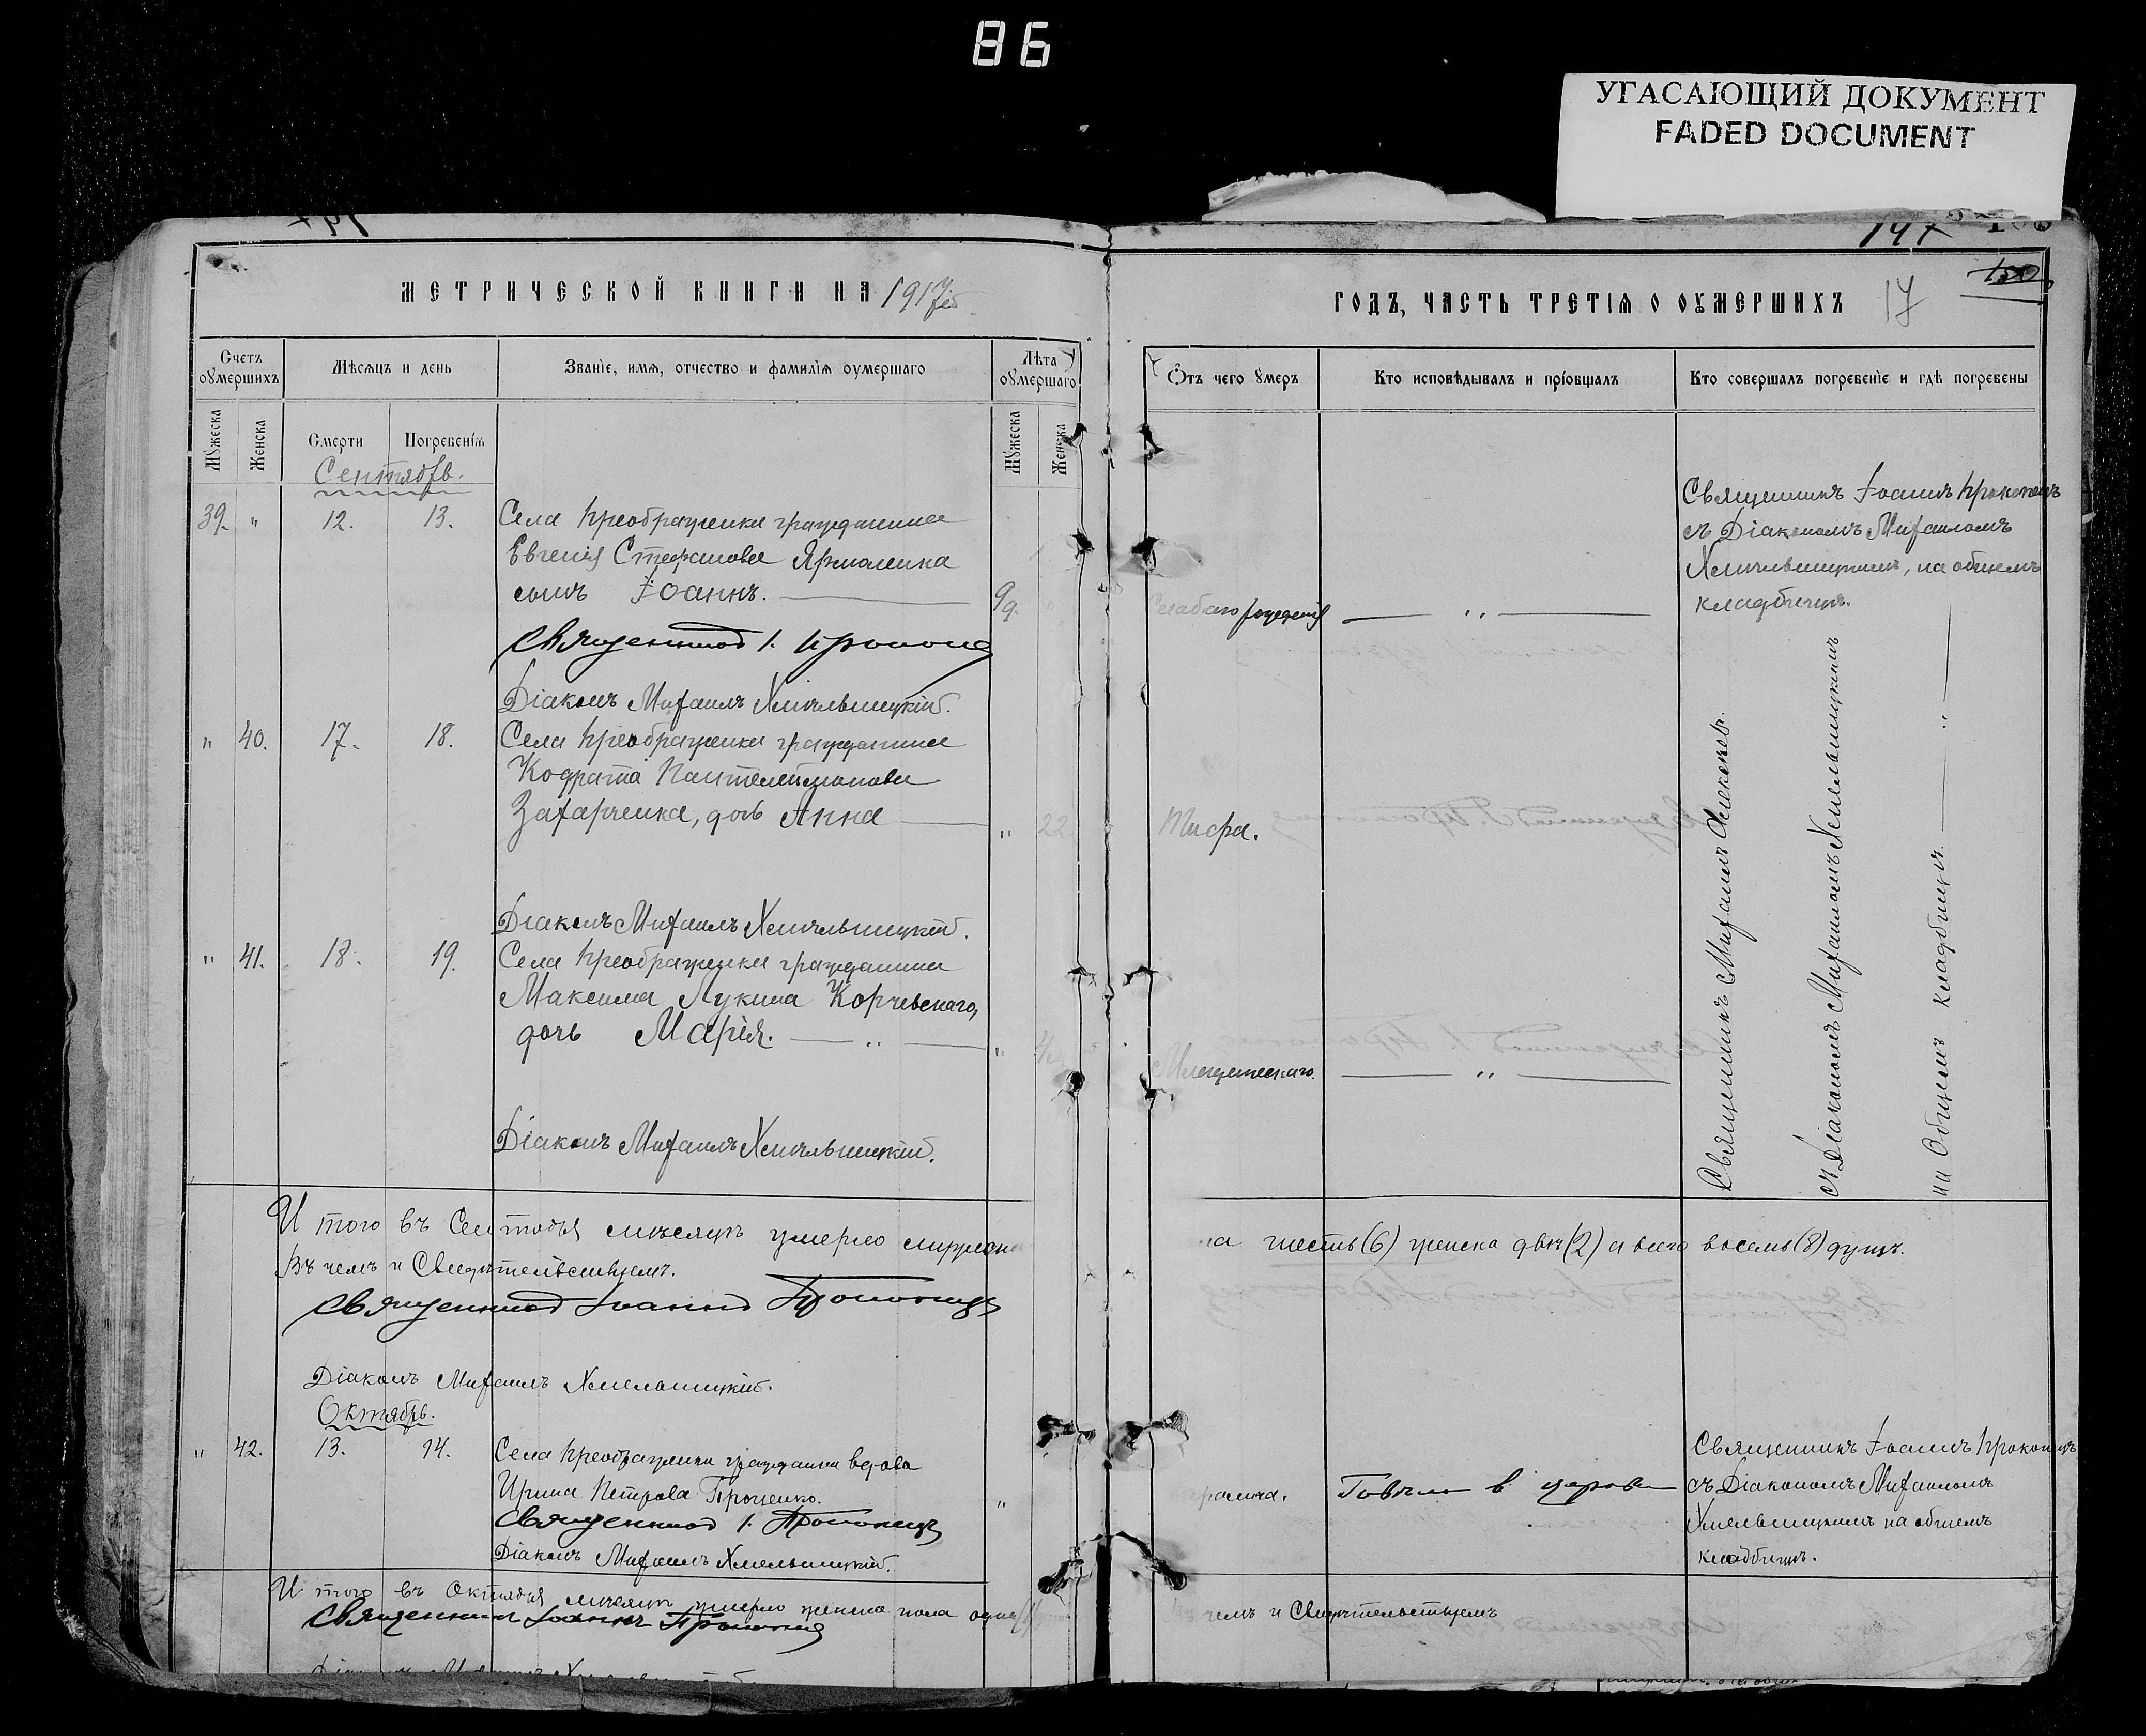 86
УГАСАЮЩИЙ ДОКУМЕНТ
FADED DOCUMENT
147
150
МЕТРИЧЕСКОЙ КНИГИ НА 1917
Счетъ оумершихъ
Мѣсяцъ и день
Званіе, имя, отчество и фамилія оумершаго
Лѣта оумершаго
Мужеска
Женска
Смерти
Погребенія
Мужеска
Женска
Сентябрь.
39. " 12. 13. Села Преображенки гражданина
Евгенія Стефанова Ярмоленка
сынъ Іоаннъ.
Священникъ І. Прокопецъ
Діаконъ Михаилъ Хмѣльницкій.
" 40. 17. 18. Села Преображенки гражданина
Кодрата Пантелеимонова
Захарченка, дочь Анна " 22.
Діаконъ Михаилъ Хмѣльницкій.
" 41. 18. 19. Села Преображенки гражданина
Максима Лукина Корчевскаго,
дочь Марія. "
Діаконъ Михаилъ Хмѣльницкій.
И того въ Сентябрѣ мѣсяцѣ умерло
Въ чемъ и Свидѣтельствуемъ.
Священникъ Іоаннъ Прокопецъ
Діаконъ Михаилъ Хмельницкій.
Октябрь.
" 42. 13. 14. Села Преображенки гражданка вдова
Ирина Петрова Проценко. "
Священникъ І. Прокопецъ
Діаконъ Михаилъ Хмельницкій.
И того въ Октябрѣ мѣсяцѣ умерло женска пола одна
Священникъ Іоаннъ Прокопецъ
ГОДЪ, ЧАСТЬ ТРЕТІЯ О ОУМЕРШИХЪ 17
Отъ чего умеръ
Кто исповѣдывалъ и пріобщалъ
Кто совершалъ погребеніе и гдѣ погребены
Священникъ Іоаннъ Прокопецъ
съ Діакономъ Михаиломъ
Хмѣльницкимъ, на общемъ
кладбищѣ.
рожденія "
Тифа.
Младенческаго. "
Священникъ Михаилъ
съ Діакономъ Михаиломъ Хмельницкимъ
на Общемъ кладбищѣ. "
шесть (6) женска двѣ (2) а всего восемь (8) душъ.
Говѣла в церкви
Священникъ Іоаннъ Прокопецъ
съ Діакономъ Михаиломъ
Хмельницкимъ на общемъ
кладбищѣ.
чемъ и Свидѣтельствуемъ